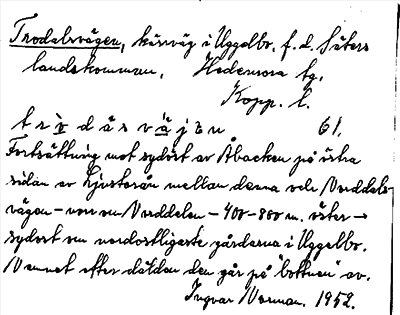 Trodalsvägen, körväg i Uggelbo, f. d. Säters
landskommun, Hedemora tg.
Kopp. l.
61.
Fortsättning mot sydöst av Åbacken på östra
sidan av Ljusterån mellan denna och Norddals-
vägen - om Norddelen - 400-800 m. öster
sydost om nordostligaste gårdarna i Uggelbo.
Namnet efter dalen den går på "bottnen" av.
Ingvar Norman. 1952.